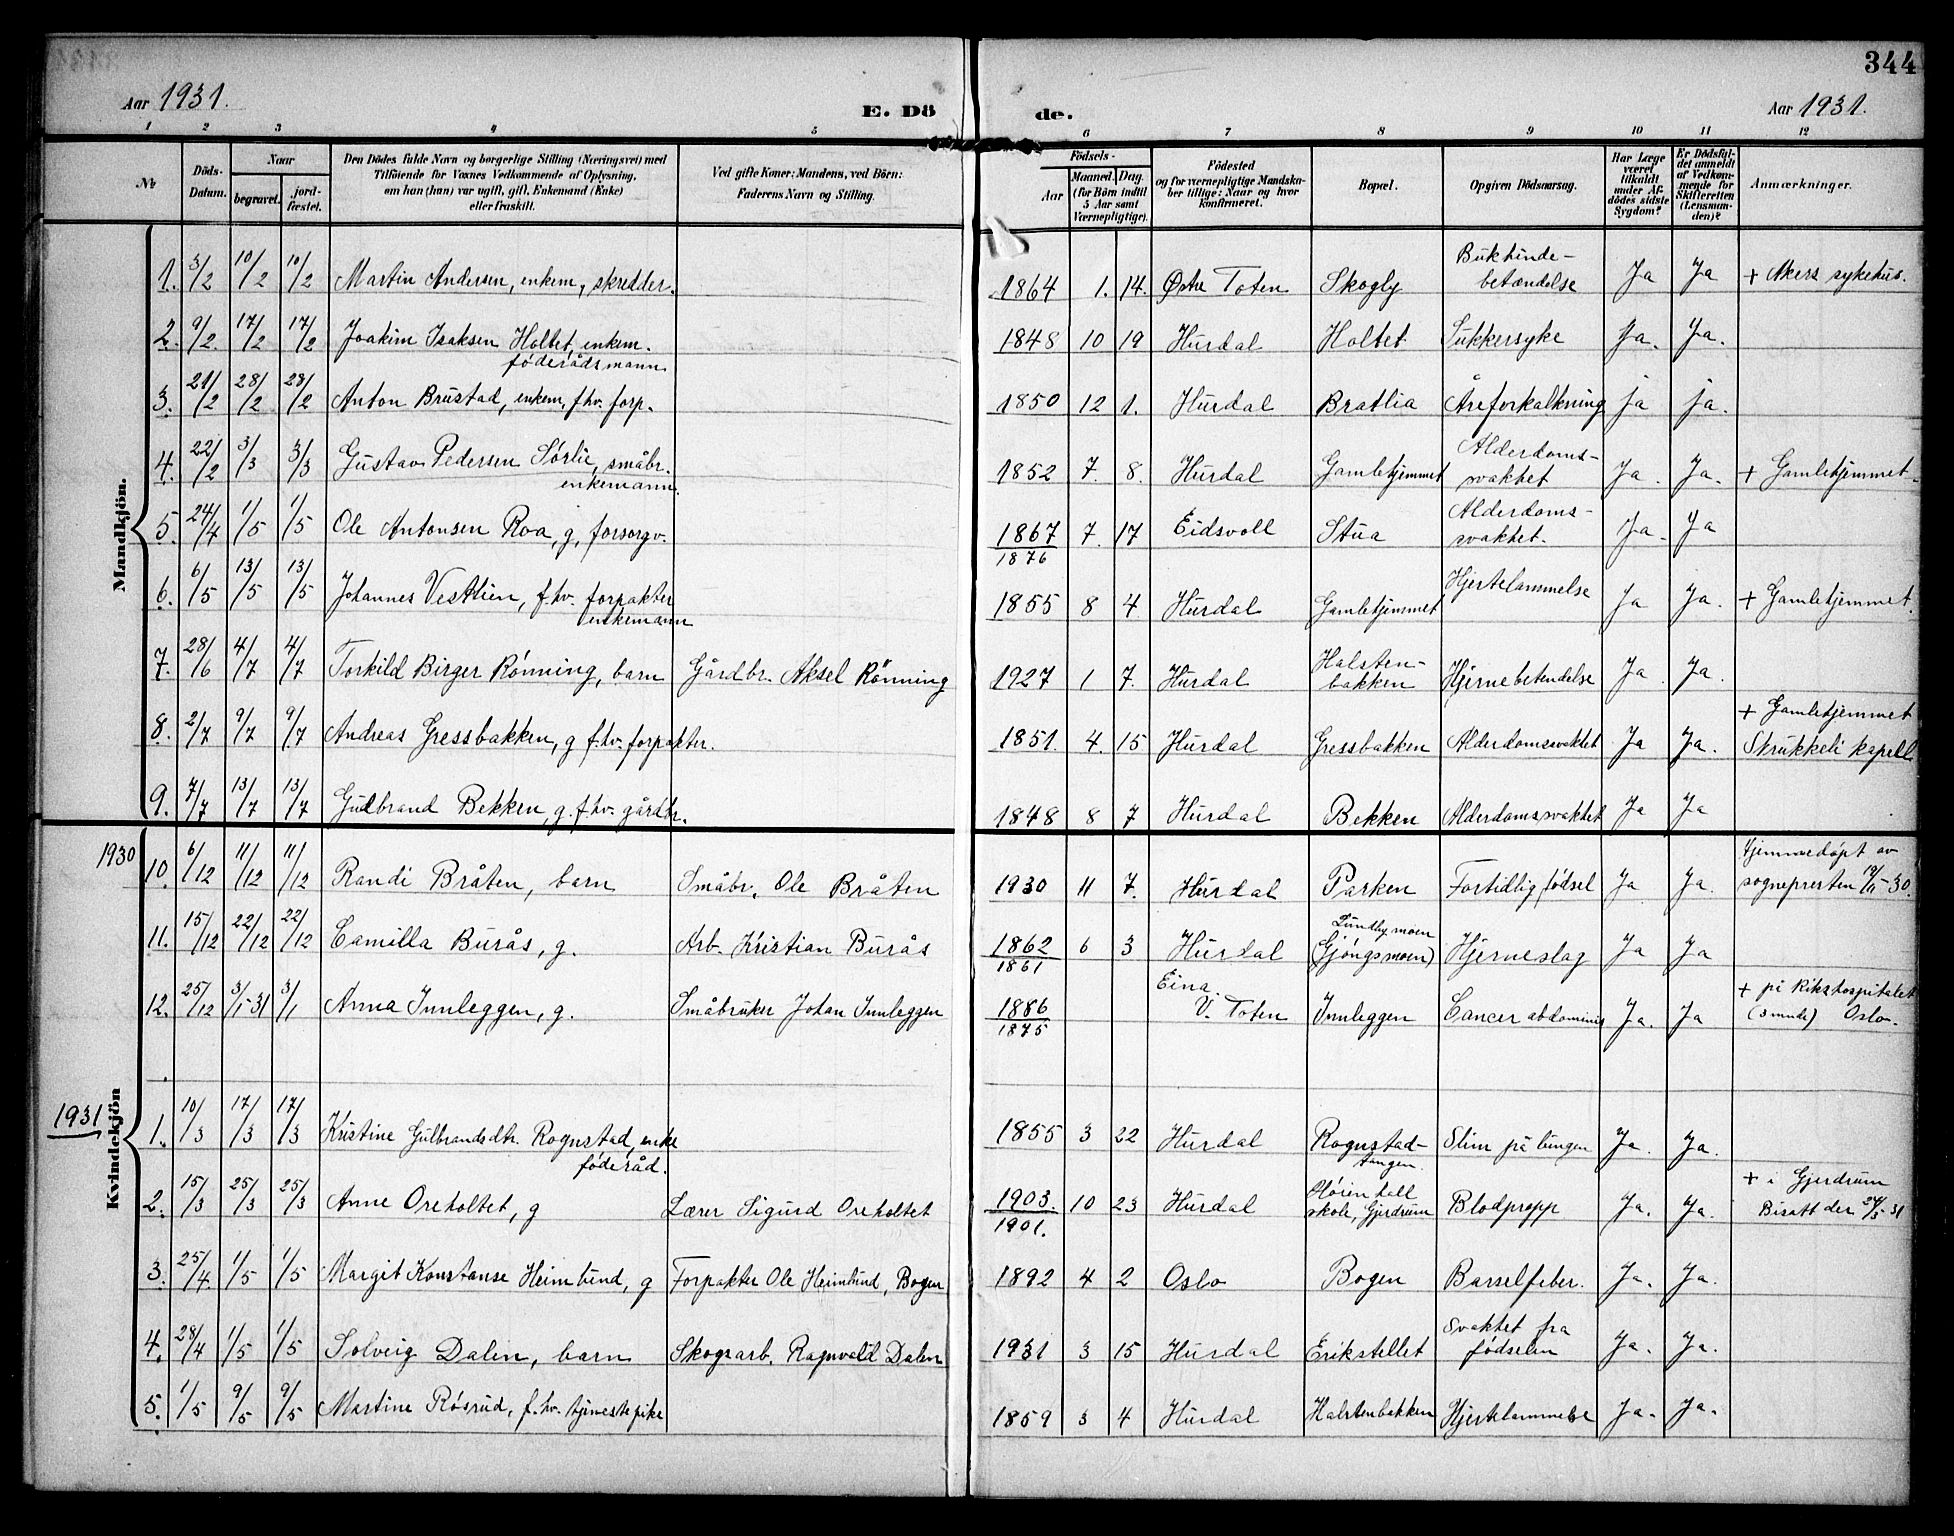 344
Aar 1931.
E. Dö
de.
Aar 1931.
1 2 3 4 5 6 7 8 9 10 11 12
№
Döds-
Datum.
Naar
begravet.
jord-
fæstet.
Den Dödes fulde Navn og borgerlige Stilling (Næringsvei) med
Tilföiende for Voxnes Vedkommende af Oplysning,
om han (hun) var ugift, gift, Enkemand (Enke)
eller fraskilt.
Ved gifte Koner: Mandens, ved Börn:
Faderens Navn og Stilling.
Födsels-
Aar
Maaned. Dag.
(for Börn indtil
5 Aar samt
Værnepligtige).
Födested
og for værnepligtige Mandska-
ber tillige: Naar og hvor
konfirmeret.
Bopæl.
Opgiven Dödsaarsag.
Har Læge
været
tilkaldt
under Af-
dödes sidste
Sygdom?
Er Dödsfal-
det anmeldt
af Vedkom-
mende for
Skifteretten
(Lensman-
den)?
Anmærkninger.
Mandkjön.
1. 3/2 10/2 10/2 Martin Andersen, enkem, skredder. 1864 1. 14. Østre Toten Skogly Bukhinde-
betændelse Ja Ja + Akers sykehus.
2. 9/2 17/2 17/2 Joakim Isaksen Holtet, enkem.
föderådsmann 1848 10 19 Hurdal Holtet Sukkersyke Ja. Ja.
3. 21/2 28/2 28/2 Anton Brustad, enkem, fhv. forp. 1850 12 1. Hurdal Bratlia Åreforkalkning ja ja.
4. 22/2 3/3 3/3 Gustav Pedersen Sörlie, småbr.
enkemann. 1852 7. 8. Hurdal Gamlehjemmet Alderdoms-
svakhet Ja. Ja. + Gamlehjemmet.
5. 24/4 1/5 1/5 Ole Antonsen Roa, g, forsorgv. 1867 7. 17 Eidsvoll Stua Alderdoms-
svakhet. Ja. Ja
1876
6. 6/5 13/5 13/5 Johannes Vestlien, f.hv. forpakter
enkemann 1855 8 4. Hurdal Gamlehjemmet Hjertelammelse Ja Ja. + Gamlehjemmet.
7. 28/6 4/7 4/7 Torkild Birger Rönning, barn Gårdbr. Aksel Rönning 1927 1 7. Hurdal Halsten-
bakken Hjernebetendelse Ja. Ja.
8. 2/7 9/7 9/7 Andreas Gressbakken, g f.hv. forpakter. 1851. 4. 15 Hurdal Gressbakken Alderdomssvakhet Ja Ja. + Gamlehjemmet
Skrukkeli kapell
9. 7/7 13/7 13/7 Gulbrand Bekken, g. f.hv. gårdbr. 1848 8 7 Hurdal Bekken Alderdomssvakhet Ja Ja
1930
10. 6/12 11/12 11/12 Randi Bråten, barn Småbr. Ole Bråten 1930 11 7. Hurdal Parken Fortidlig födsel Ja Ja. hjemmedöpt av
sognepresten 19/11-30.
11. 15/12 22/12 22/12 Camilla Burås, g. Arb. Kristian Burås 1862 6 3 Hurdal Lundbymoen
(Gjöngsmoen) Hjerneslag Ja Ja
1861
12. 25/12 3/1-31 3/1 Anna Innleggen, g. Småbruker Johan Innleggen 1886 Eina
V. Toten Innleggen Cancer abdominis Ja. Ja + på Rikshospitalet
(3 mndr) Oslo.
1875
Kvindekjön
1931
1. 10/3 17/3 17/3 Kristine Gulbrandsdtr. Rognstad, enke
föderåd. 1855 3 22 Hurdal Rognstad-
tangen. Slim på lungen Ja. Ja.
2. 15/3 25/3 25/3 Anne Oreholtet, g Lærer Sigurd Oreholtet 1903. 10 23 Hurdal
skole, Gjerdrum Blodpropp Ja. Ja. + i Gjerdrum
Bisatt der 24/3-31
1901.
3. 25/4. 1/5 1/5 Margit Konstanse Heimlund, g Forpakter Ole Heimlund, Bogen 1892 4 2 Oslo Bogen Barselfeber. Ja. Ja.
4. 28/4 1/5 1/5 Solveig Dalen, barn Skogsarb. Ragnvald Dalen 1931 3 15 Hurdal Erikstellet Svakhet fra
fødselen Ja. Ja.
5. 1/5 9/5 9/5 Martine Rösrud, f.hv. tjenestepike 1859 3 4 Hurdal Halstenbakken Hjertelammelse Ja. Ja.